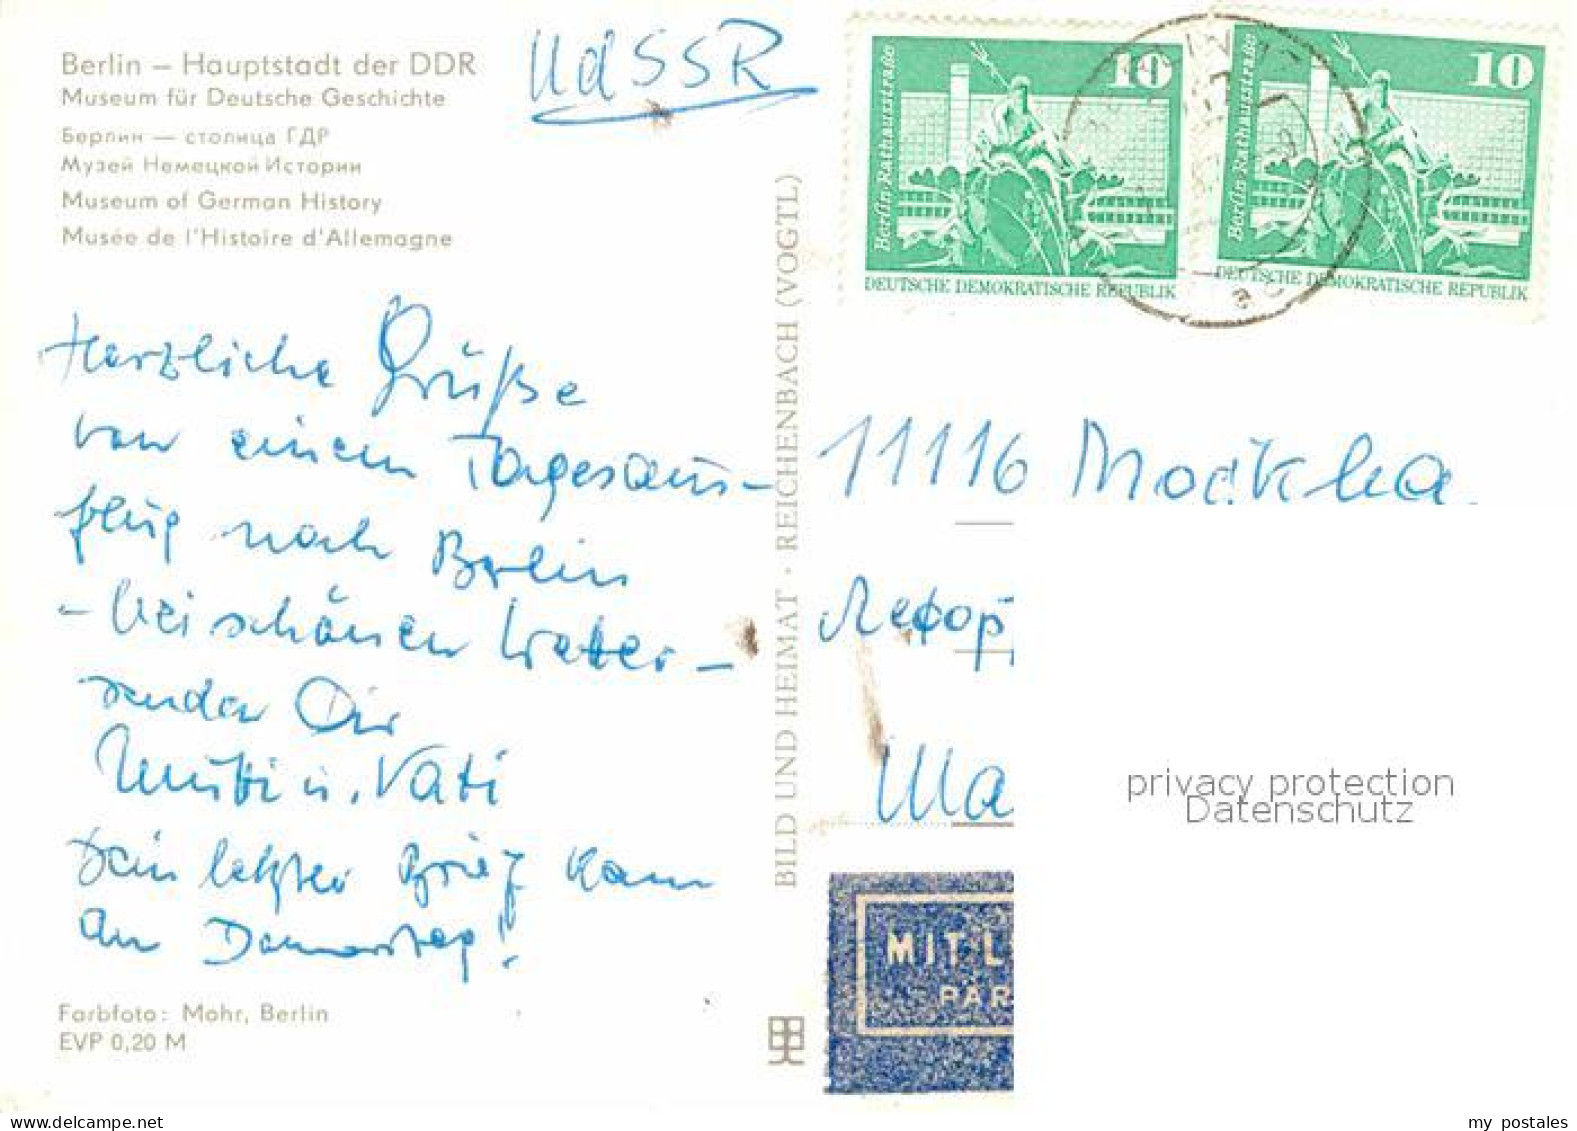 Berlin – Hauptstadt der DDR
Museum für Deutsche Geschichte
Берлин — столица ГДР
Музей Немецкой Истории
Museum of German History
Musée de l'Histoire d'Allemagne
UdSSR
10
Berlin·Rathausstraße
DEUTSCHE DEMOKRATISCHE REPUBLIK
10
Berlin·Rathausstraße
DEUTSCHE DEMOKRATISCHE REPUBLIK
Herzliche Grüße
von einem Tagesaus-
flug nach Berlin
- bei schönen Wetter -
senden Dir
Mutti u. Vati
Dein letzter Brief kam
am Donnerstag!
Farbfoto: Mohr, Berlin
EVP 0,20 M
BILD UND HEIMAT · REICHENBACH (VOGTL)
11116 Москва
Лефор
Ма
MIT L
PAR
privacy protection
Datenschutz
my postales